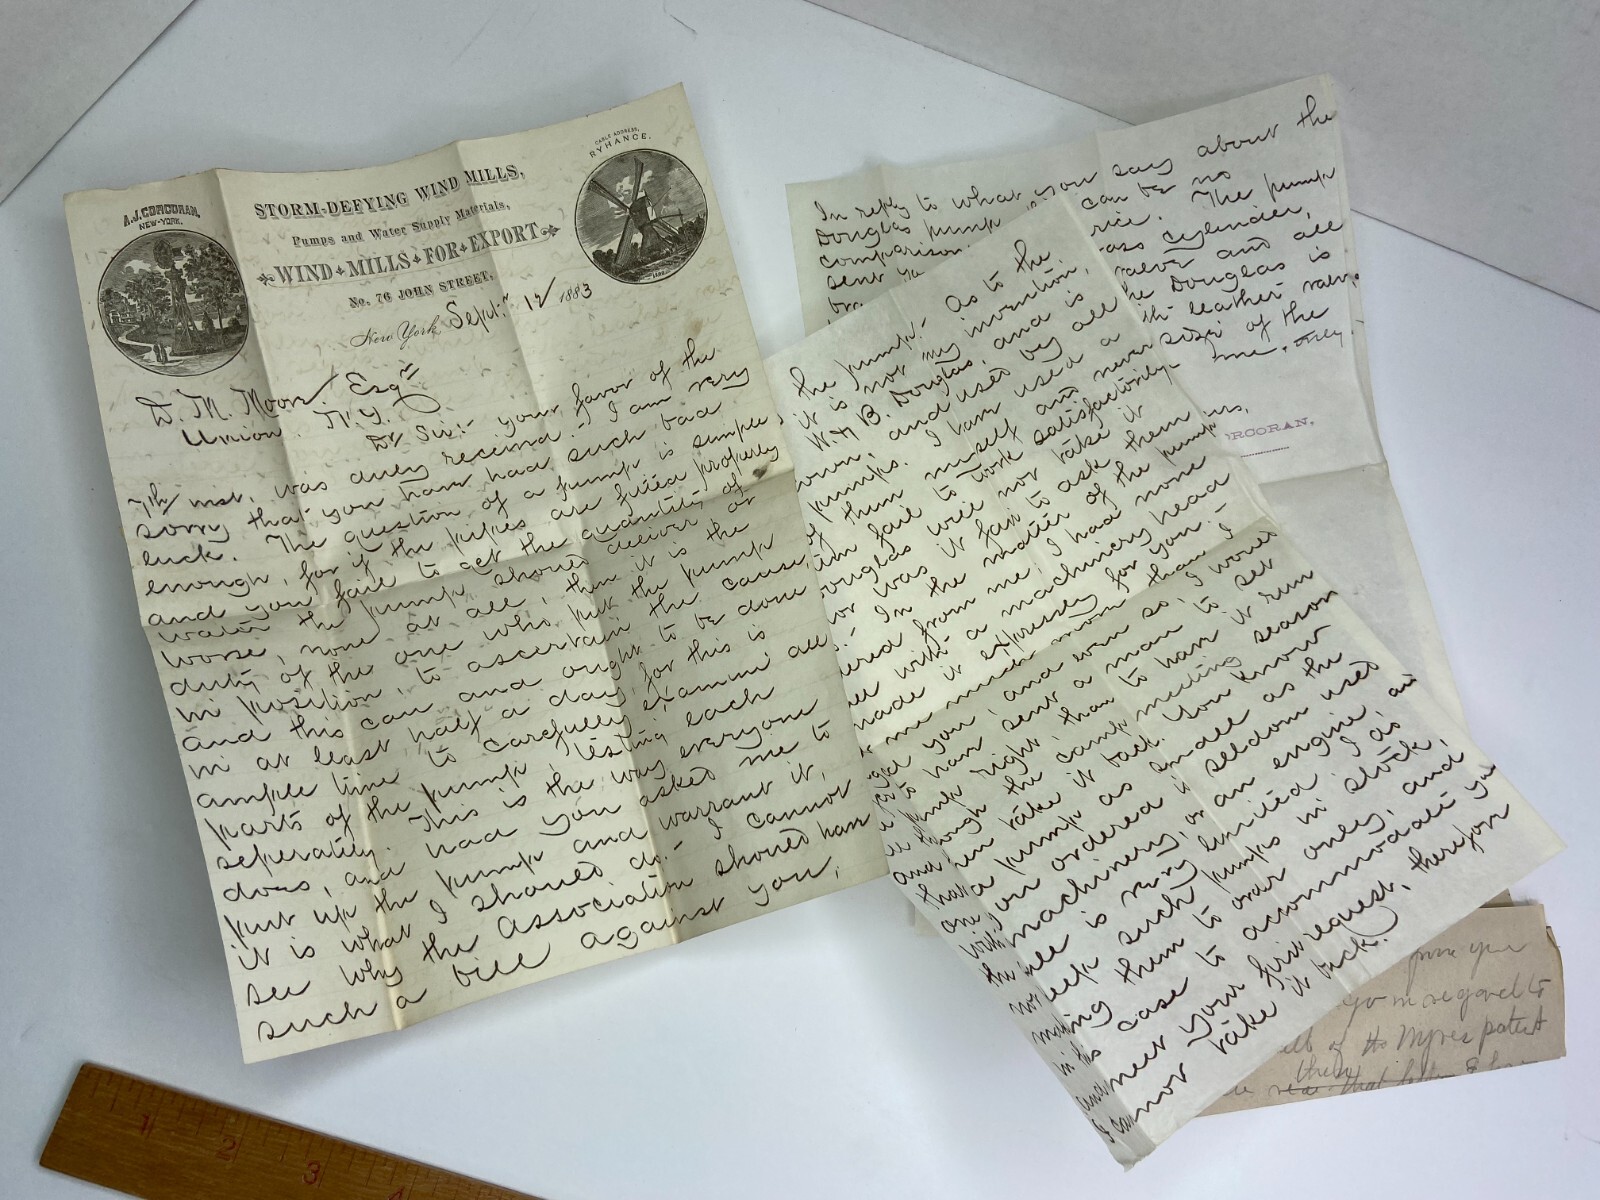 A.J. CORCORAN,
NEW-YORK.
CABLE ADDRESS,
RYHANCE.
STORM-DEFYING WIND MILLS,
Pumps and Water Supply Materials,
WIND MILLS FOR EXPORT
No. 76 JOHN STREET,
New York Sept: 12/ 1883
D. M. Moore, Esqr
Union. N. Y.
Dr Sir:- your favor of the
7th inst, was duly received. I am very
sorry that you have had such bad
luck. The question of a pump is simple
enough, for if the pipes are fitted properly
and you fail to get the quantity of
water the pump should deliver or
worse, none at all, then it is the
duty of the one who put the pump
in position, to ascertain the cause,
and this can and ought to be done
in at least half a day, for this is
ample time to carefully examine all
parts of the pump, testing each
seperately. This is the way everyone
does, and had you asked me to
put up the pump and warrant it,
it is what I should do.- I cannot
see why the Association should have
such a bill against you,
the pump.- As to the
it is not my invention,
W. & B. Douglas, and is
and used by all
pumps. I have used a
of them myself and never
fail to work satisfactorily
Douglas will not take it
or was it fair to ask them
In the matter of the pump
ered from me, I had none
with a machinery head
made it expressly for you.-
me much more than I
you, and even so, I would
to have sent a man to set
pump right, than to have it run
and through the camp meeting season
then take it back. You know
that a pump as small as the
one you ordered is seldom used
with machinery, or an engine, and
the sale is very limited. I do
not keep such pumps in stock,
making them to order only, and
in this case to accommodate you
and meet your first request, therefore
I cannot take it back.
In reply to what you say about the
Douglas pump can be no
comparison rice. The pump
sent yo ass cylinder,
bra valve and all
he Douglas is
th leather valve.
sizes of the
me. truly.
RCORAN,
from you
you in regard to
of the Myres patent
these
that